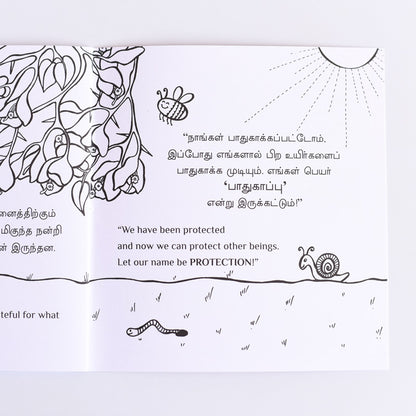 னைத்திற்கும்
மிகுந்த நன்றி
ன் இருந்தன.
teful for what
“நாங்கள் பாதுகாக்கப்பட்டோம்.
இப்போது எங்களால் பிற உயிர்களைப்
பாதுகாக்க முடியும். எங்கள் பெயர்
‘பாதுகாப்பு’
என்று இருக்கட்டும்!”
“We have been protected
and now we can protect other beings.
Let our name be PROTECTION!”